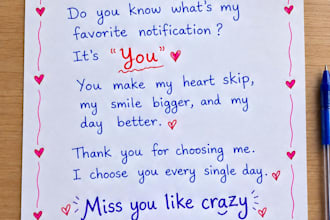 Do you know what's my
favorite notification?
It's "You"
You make my heart skip,
my smile bigger, and my
day better.
Thank you for choosing me.
I choose you every single day.
Miss you like crazy